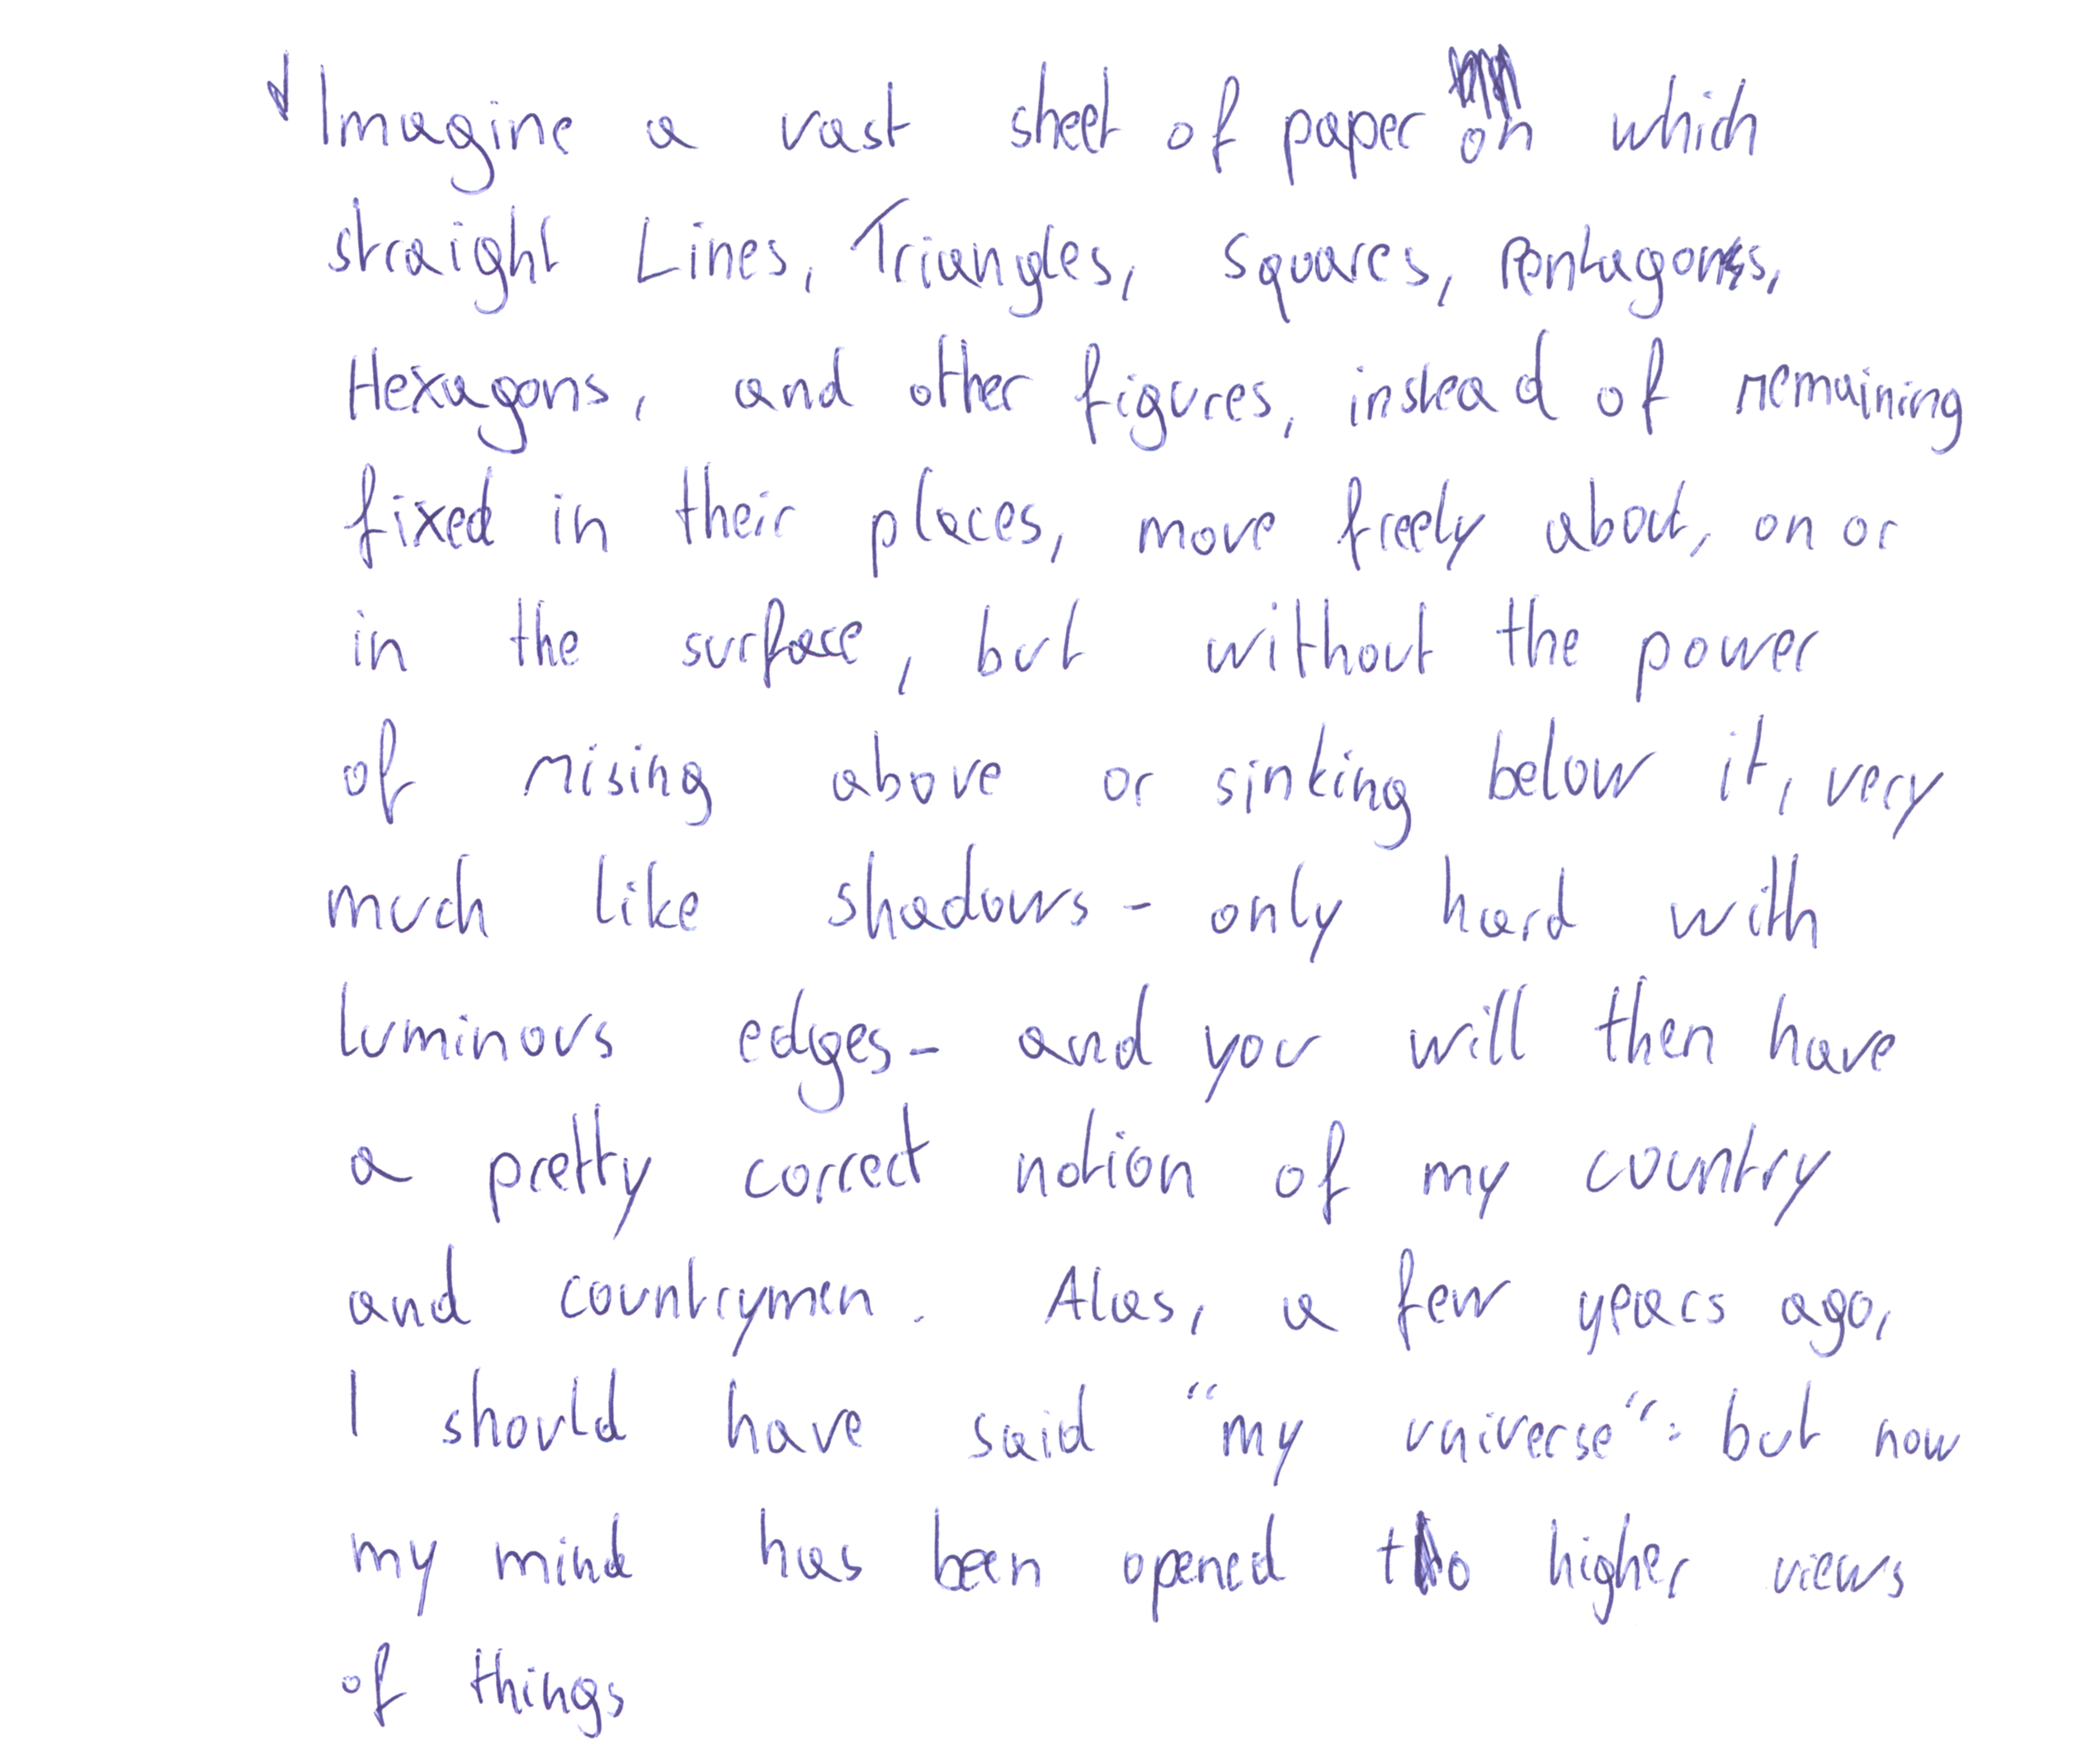 Imagine a vast sheet of paper on which
straight Lines, Triangles, Squares, Pentagons,
Hexagons, and other figures, instead of remaining
fixed in their places, move freely about, on or
in the surface, but without the power
of rising above or sinking below it, very
much like shadows - only hard with
luminous edges - and you will then have
a pretty correct notion of my country
and countrymen. Alas, a few years ago,
I should have said "my universe": but now
my mind has been opened to higher views
of things